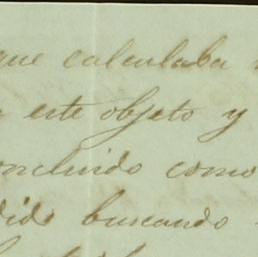 que calculaba
este objeto y
concluido como
dido buscando